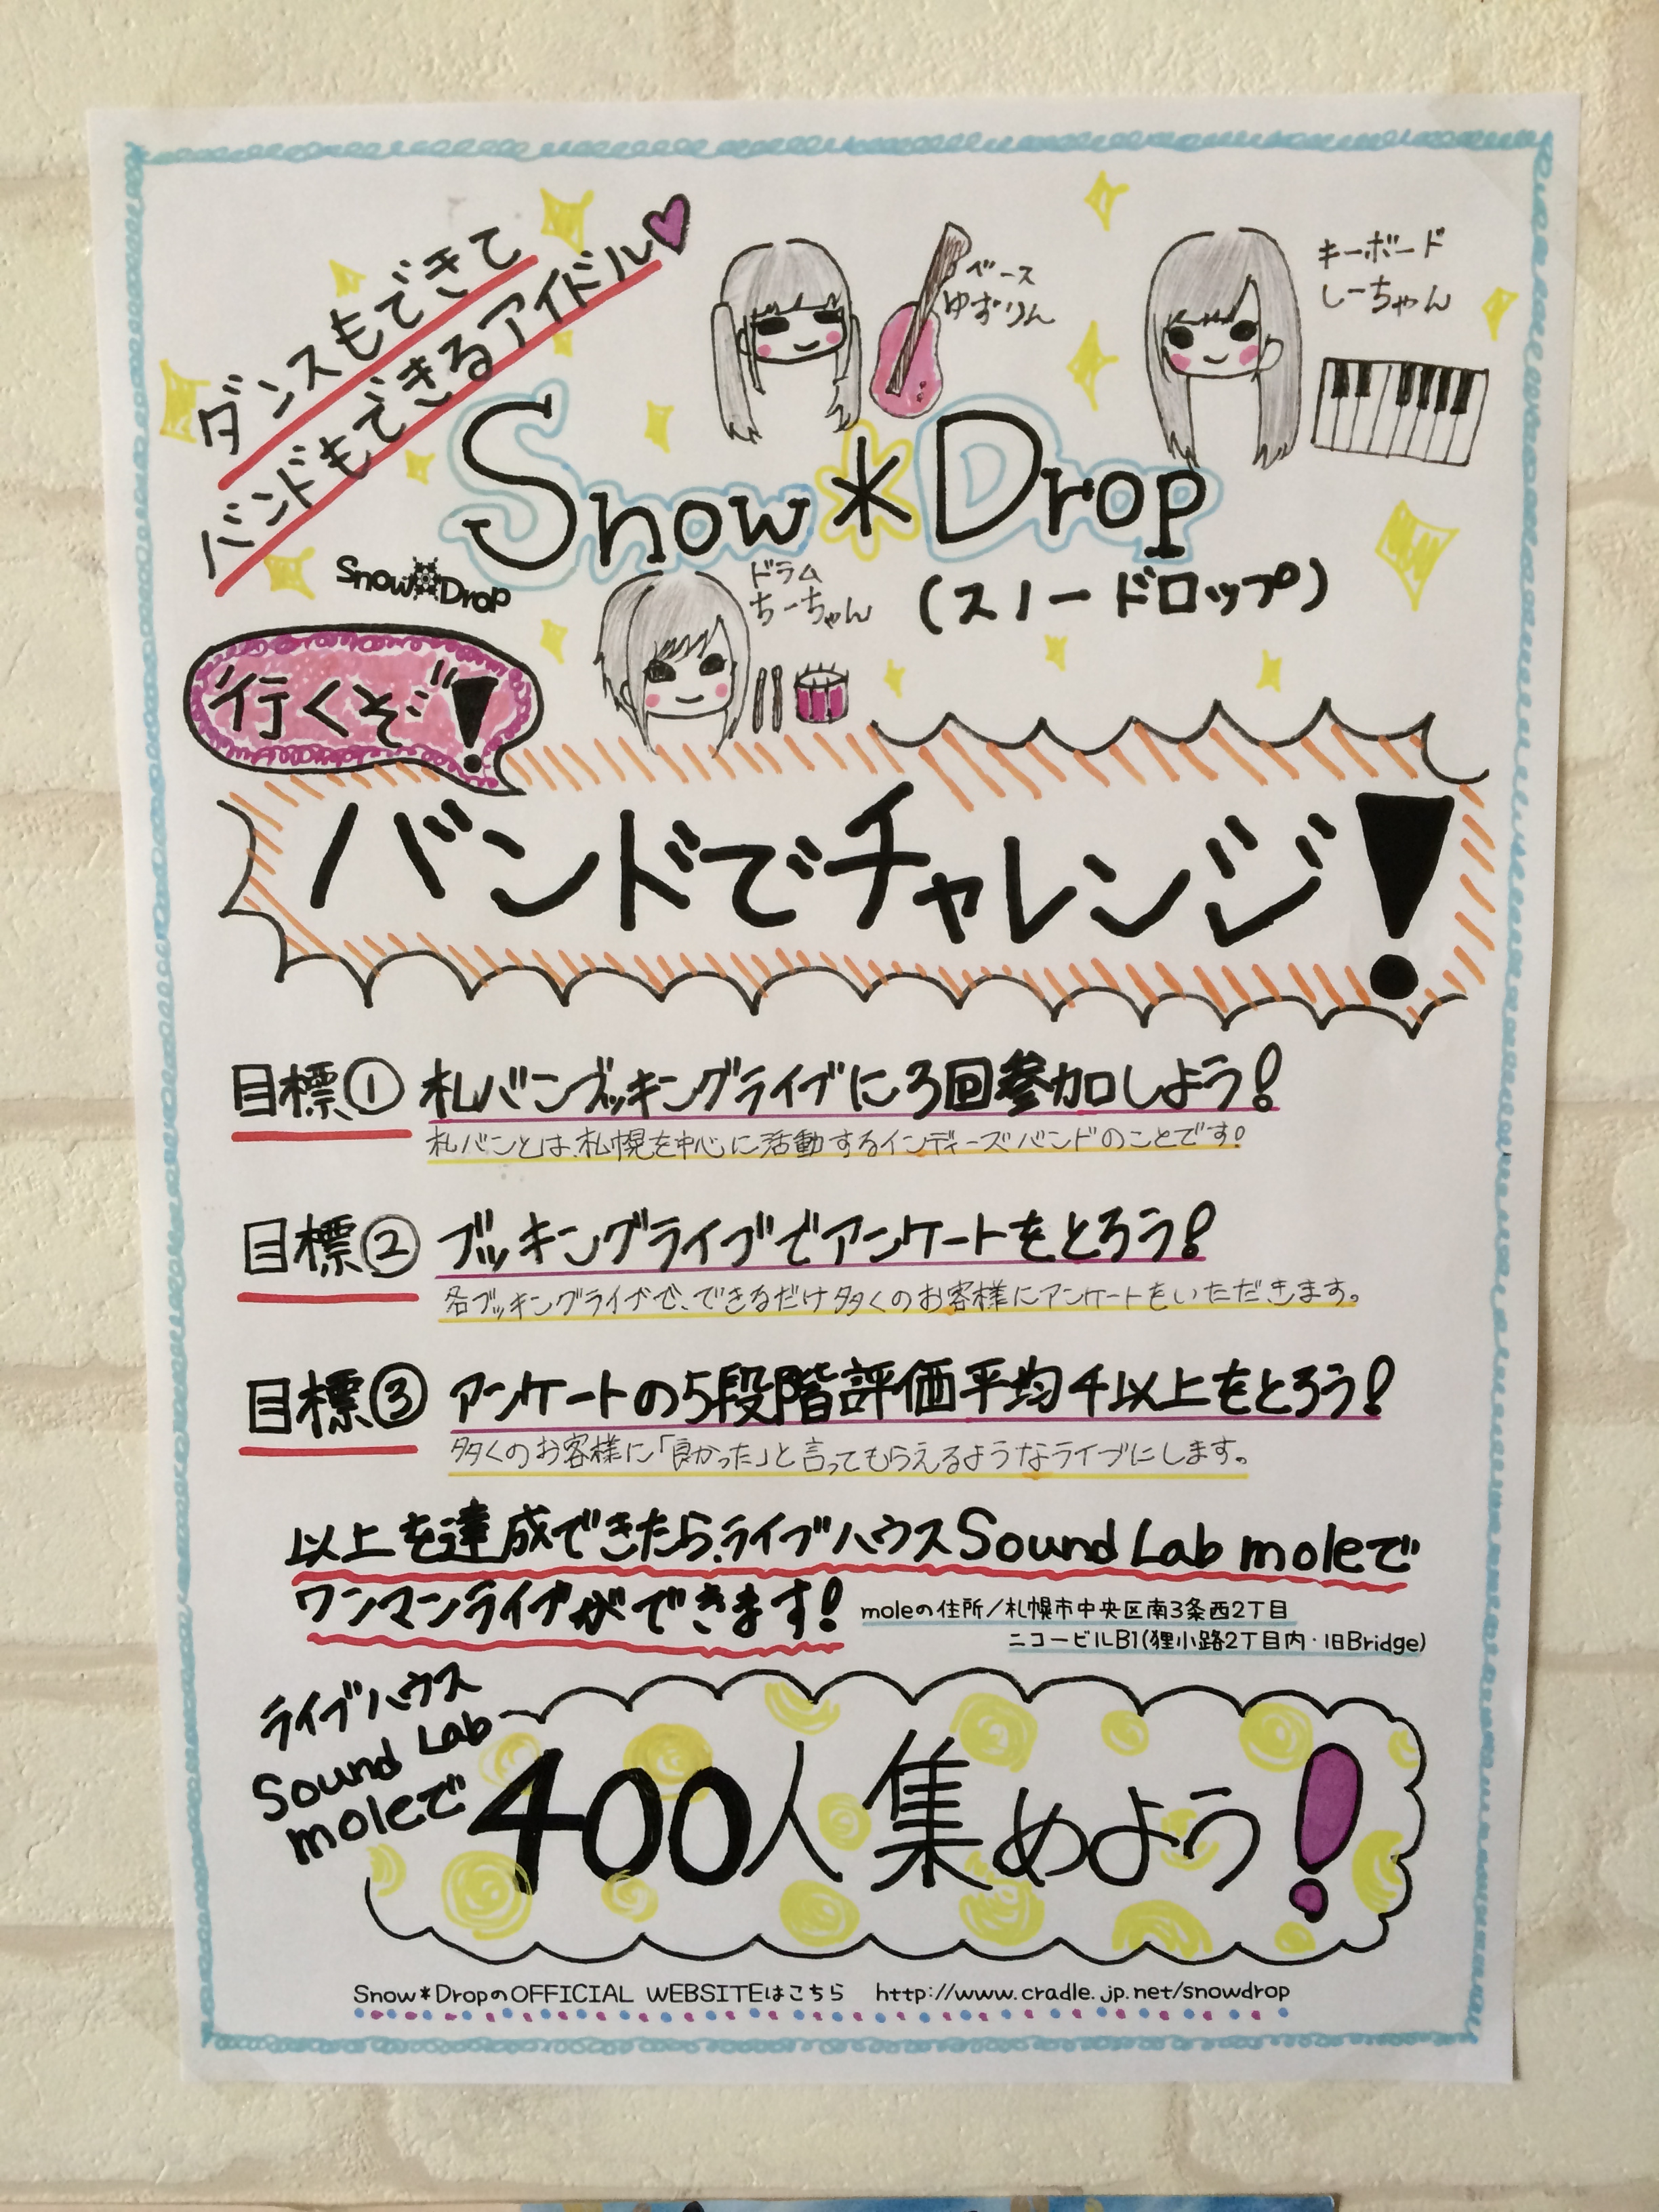 ダンスもできて
バンドもできるアイドル
ベース
ゆずりん
キーボード
しーちゃん
Snow*Drop
(スノードロップ)
Snow Drop
ドラム
ちーちゃん
行くぞ!
バンドでチャレンジ!
目標① 札バンブッキングライブに3回参加しよう!
札バンとは、札幌を中心に活動するインディーズバンドのことです!
目標② ブッキングライブでアンケートをとろう!
各ブッキングライブで、できるだけ多くのお客様にアンケートをいただきます。
目標③ アンケートの5段階評価平均4以上をとろう!
多くのお客様に「良かった」と言ってもらえるようなライブにします。
以上を達成できたら、ライブハウスSound Lab moleで
ワンマンライブができます!
moleの住所/札幌市中央区南3条西2丁目
ニコービルB1(狸小路2丁目内・旧Bridge)
ライブハウス
Sound Lab
moleで
400人集めよう!
Snow*DropのOFFICIAL WEBSITEはこちら http://www.cradle.jp.net/snowdrop